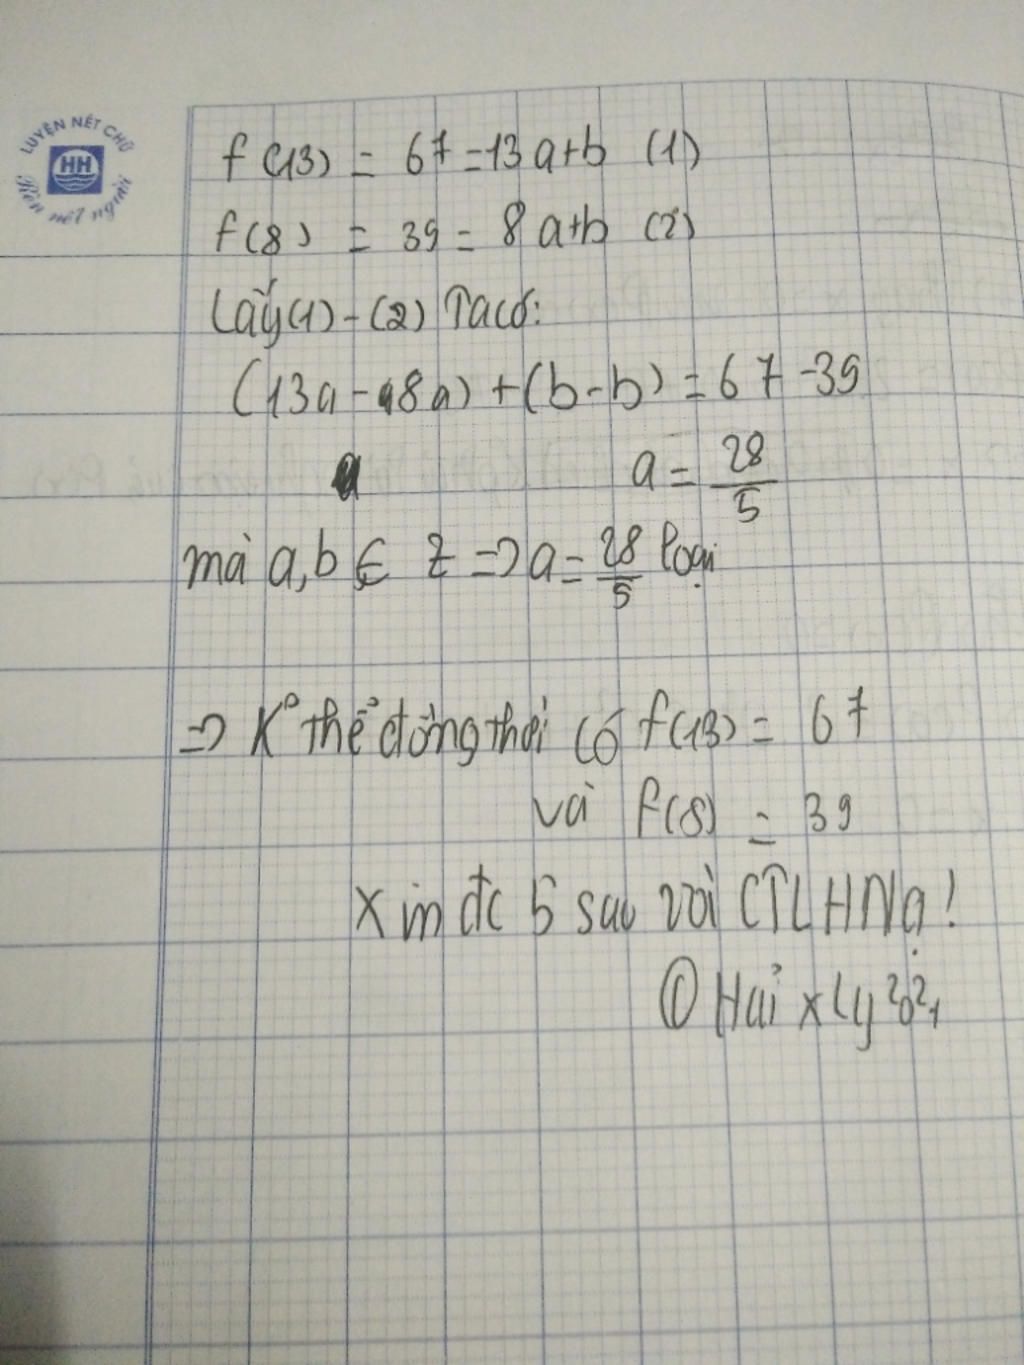 LUYỆN NÉT CHỮ
HH
Rèn nết người
f(13) = 67 = 13a+b (1)
f(8) = 39 = 8a+b (2)
Lấy(1)-(2) Ta có:
(13a-8a)+(b-b)=67-39
a = 28/5
mà a,b ∈ Z => a = 28/5 loại
=> K° thể đồng thời có f(13) = 67
và f(8) = 39
Xin đc 5 sao với CTLHN ạ!